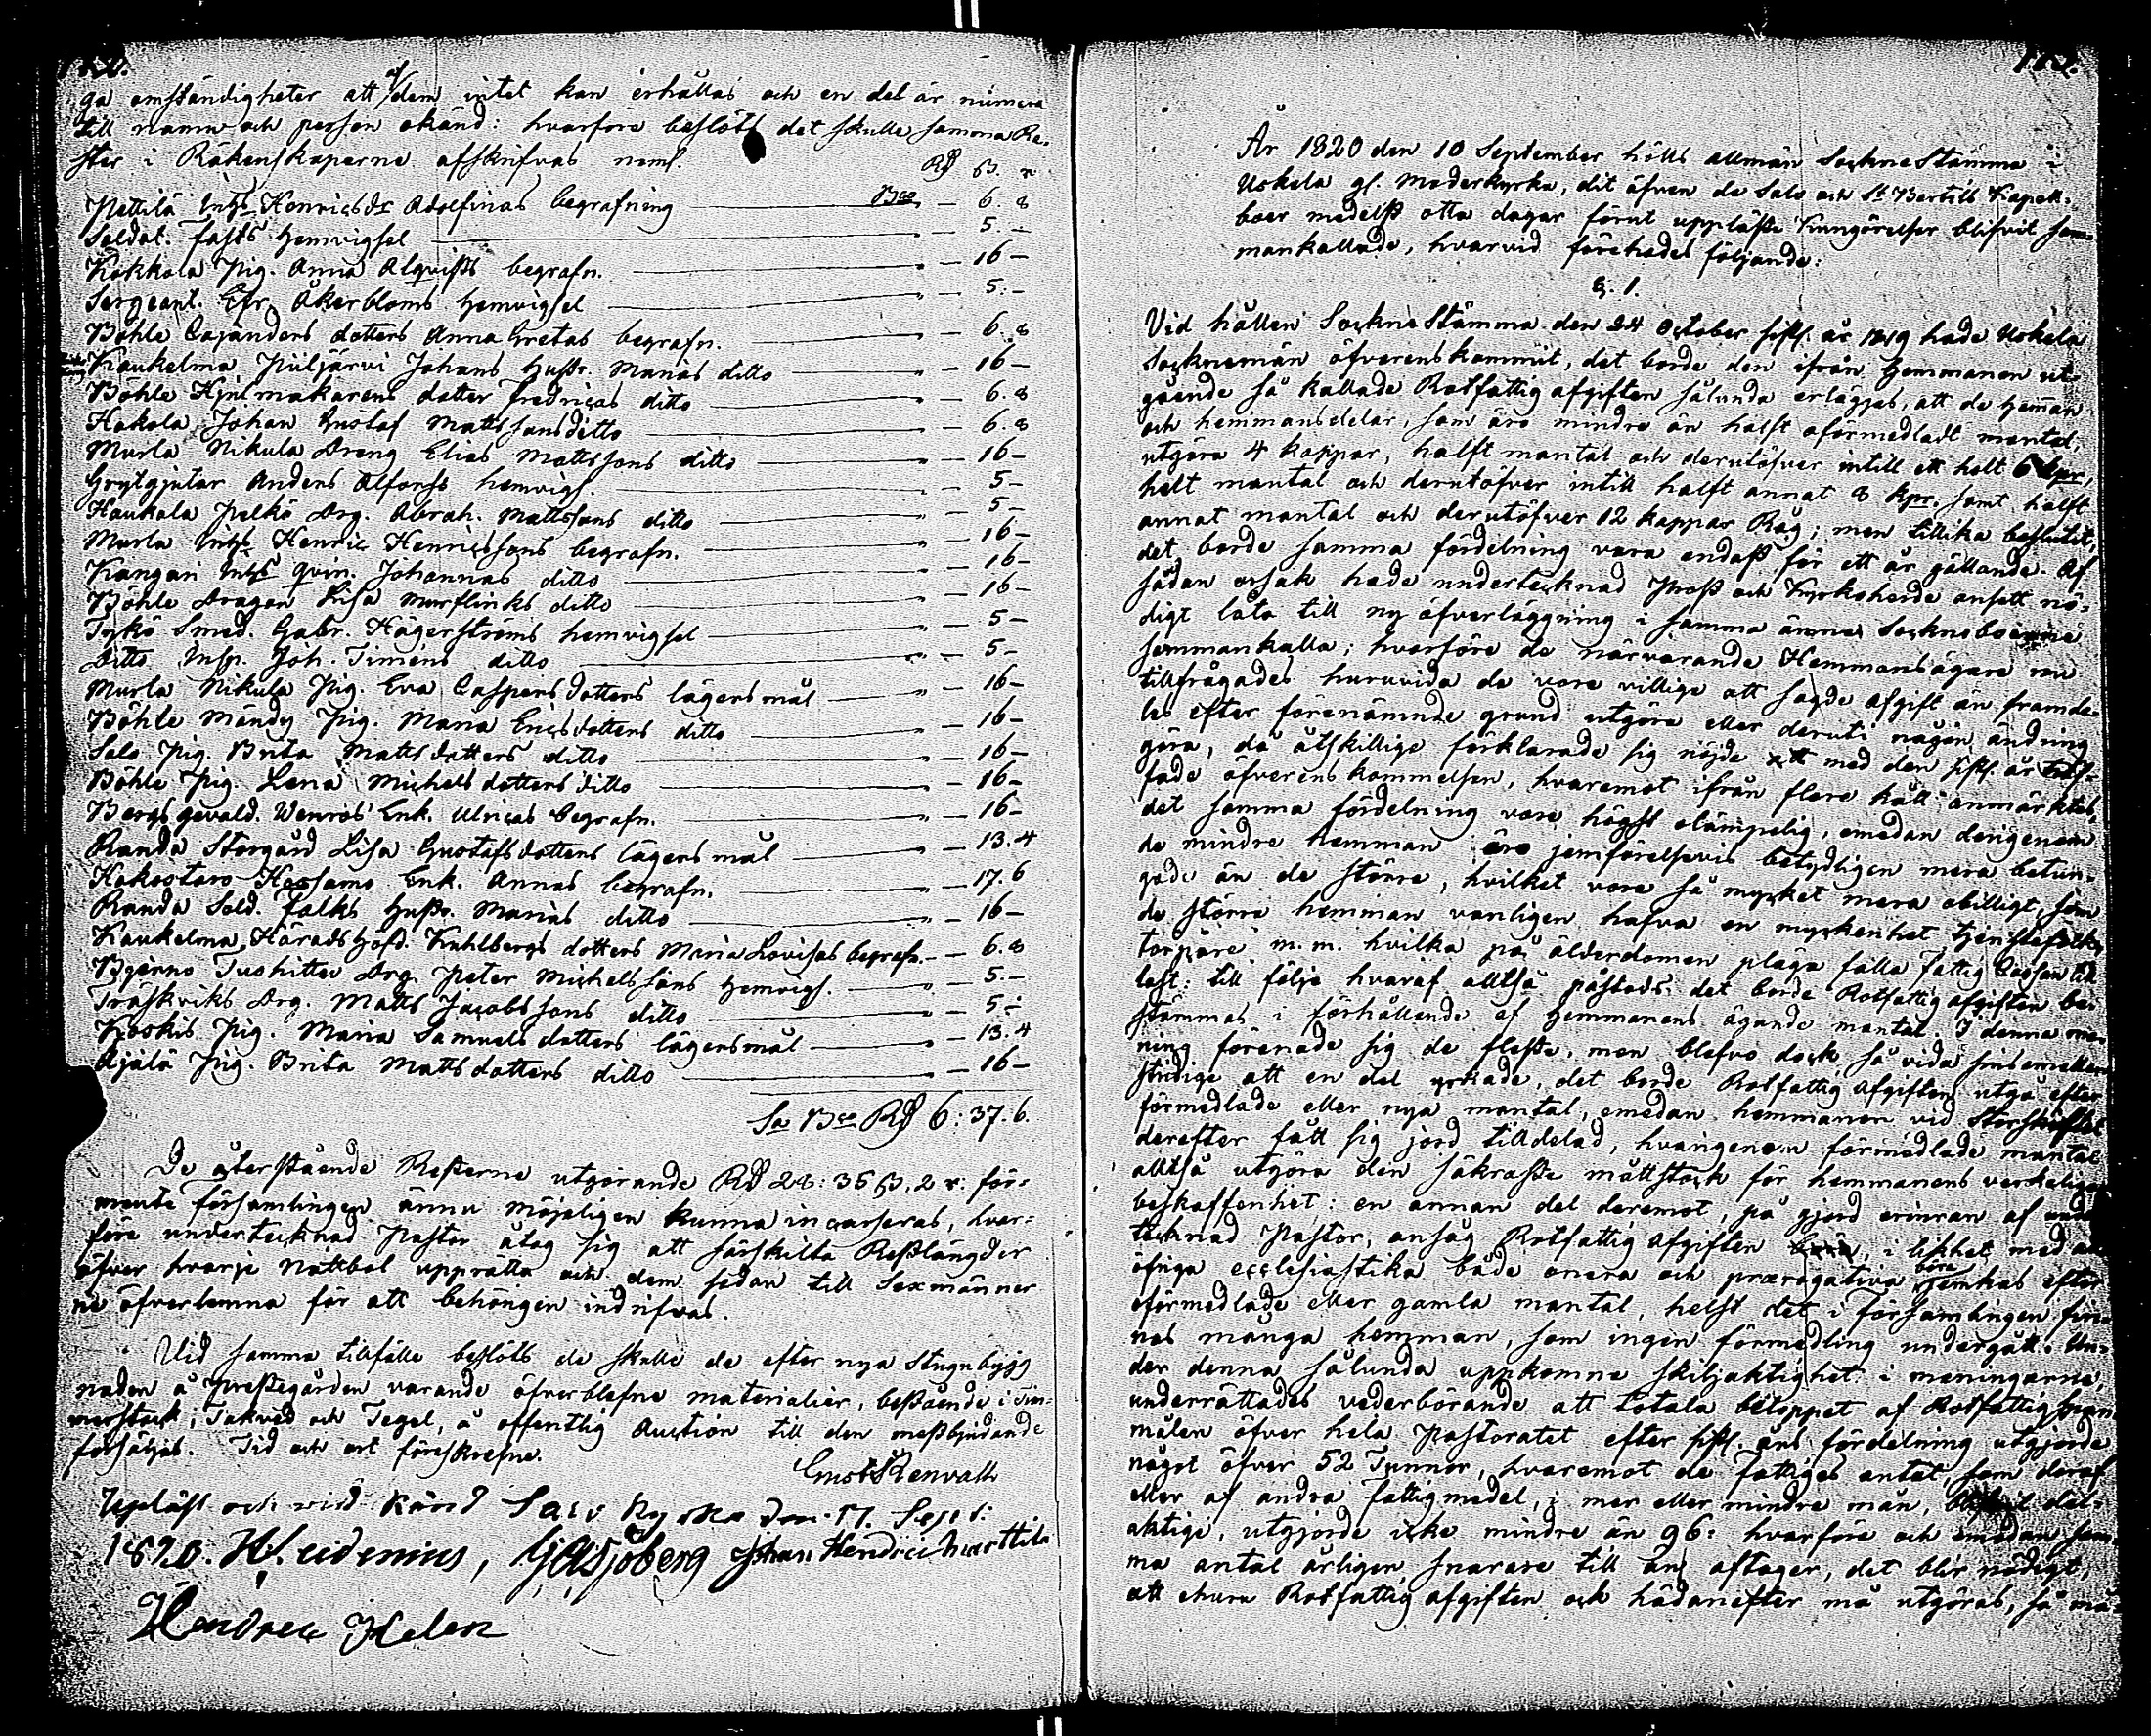 ga omständigheter att af dem intet kan erhållas och en del är numera
till namn och person okänd: hvarföre beslöts det skulle samma Re-
ster i Räkenskaperne afskrifvas neml.
Rd ß. r
Pettilä Inhs Henricsdr Adolfinas begrafning Bco — 6. 8
Soldat. Fasts hemvigsel — 5. -
Kokkola Pig. Anna Alqvists begrafn. — 16 -
Sergeant. Efr. Åkerbloms hemvigsel — 5. -
Böhle Cajanders dotters Anna Gretas begrafn. — 6. 8
Kaukelma Piiljärvi Johans Hustr. Marias ditto — 16 -
Böhle Hjulmakarens dotter Fredricas ditto — 6. 8
Hakola Johan Gustaf Mattssons ditto — 6. 8
Murla Nikula Dreng Elias Mattssons ditto — 16 -
Grytgjutar Anders Alfonss hemvigs. — 5 -
Haukala Pelkö Drg. Abrah. Mattssons ditto — 5 -
Murla Inhs Henric Henricssons begrafn. — 16 -
Kangari Inhs Qvin. Johannas ditto — 16 -
Böhle Dragon Lisa Murflinks ditto — 16 -
Tykö Smed. Gabr. Hägerströms hemvigsel — 5 -
Ditto Insp. Joh. Timens ditto — 5 -
Murla Nikula Pig. Eva Caspersdotters lägersmål — 16 -
Böhle Mändy Pig. Maria Ericsdotters ditto — 16 -
Salo Pig. Brita Mattsdotters ditto — 16 -
Böhle Pig. Lena Michelsdotters ditto — 16 -
Bergsgevald. Wenros Enk. Ulricas begrafn. — 16 -
Randa Storgård Lisa Gustafsdotters lägersmål — 13. 4
Kakostaro Enk. Annas begrafn. — 17. 6
Randa Sold. Falks Hustr. Marias ditto — 16 -
Kaukelma Häradshöfd. Kuhlbergs dotters Maria Lovisas begrafn. — 6. 8
Bjerno Tuohittu Drg. Peter Michelssons hemvigs. — 5. -
Träskviks Drg. Matts Jacobssons ditto — 5 -
Koskis Pig. Maria Samuelsdotters lägersmål — 13. 4
Äjälä Pig. Brita Mattsdotters ditto — 16 -
Sa Bco Rd 6: 37. 6.
De återstående Resterne utgörande Rd 28: 35 ß. 2 r. för-
mente församlingen ännu möjeligen kunna incasseras, hvar-
före undertecknad Pastor åtog sig att särskilta Restlängder
öfver hvarje Nattbol upprätta och dem sedan till Sexmänner
ne öfverlemna för att behörigen indrifvas.
Vid samma tillfälle beslöts de skulle de efter nya Stugubygg
naden å Prestegården varande öfverblefne materialier, bestående i Tim-
merstock, Takved och Tegel, å offentlig Auction till den mestbjudande
försäljas. Tid och ort föreskrefne.
Gust. Renvall
Upläst och vid känd Salo Kyrka den 17. Sept:
1820. H. Heidenius, G. A. Sjöberg Johan Hendric Marttila
Hendrec Helen
År 1820 den 10 September hölls allmän SockneStämma i
Uskela gl. Moderkyrka, dit äfven de Salo och St Bertils Kapell-
boer medelst otta dagar förut uppläste Kungörelser blifvit sam-
mankallade, hvarvid förehades följande:
§. 1.
Vid hållen SockneStämma den 24 October sistl. år 1819 hade Uskela
Socknemän öfverenskommit, det borde den ifrån Hemmanen ut-
gående så kallade Rotfattig afgiften sålunda erläggas, att de heman
och hemmansdelar, som äro mindre än halft oförmedladt mantal,
utgöra 4 kappar, halft mantal och derutöfver intill ett helt 6 kpr,
helt mantal och derutöfver intill halft annat 8 kpr. samt halft
annat mantal och derutöfver 12 kappar Råg; men tillika beslutit,
det borde samma fördelning vara endast för ett år gällande. Af
sådan orsak hade undertecknad Prost och Kyrkoherde ansett nö-
digt låta till ny öfverläggning i samma ämne Sockneboerne
sammankalla; hvarföre de närvarande Hemmansägare nu
tillfrågades huruvida de vore villige att sagde afgift än framde-
les efter förenämnde grund utgöra eller deruti någon ändring
göra, då åtskillige förklarade sig nöjde med den sistl. år
fade öfverenskommelsen, hvaremot ifrån flera håll anmärktes,
det samma fördelning vore högst olämpelig, emedan derigenom
de mindre hemman äro jemförelsevis betydligen mera betun-
gade än de större, hvilket vore så mycket mera obilligt, som
de större hemman vanligen hafva en myckenhet tjenstefolk,
torpare m. m. hvilka på ålderdomen pläga falla fattig Cassan till
last: till följe hvaraf alltså påstods det borde Rotfattig afgiften be-
stämmas i förhållande af Hemmanens ägande mantal. I denna me-
ning förenade sig de fleste, men blefvo dock så vida sinsemellan
stridige att en del yrkade, det borde Rotfattig Afgiften utgå efter
förmedlade eller nya mantal, emedan hemmanen vid Storskiftet
derefter fått sig jord tilldelad, hvarigenom förmedlade mantal
alltså utgöra den säkraste måttstock för hemmanens verkeliga
beskaffenhet: en annan del deremot, på gjord erinran af under
tecknad Pastor, ansåg Rotfattig Afgiften, i likhet med
öfriga ecclesiastika både onera och prærogativa böra jemkas efter
oförmedlade eller gamla mantal, helst det i församlingen fin-
nas många hemman, som ingen förmedling undergått. Un-
der denna sålunda uppkomne skiljaktighet i meningarne,
underrättades vederbörande att totala beloppet af Rotfattig span-
målen öfver hela Pastoratet efter sistl. års fördelning utgjorde
något öfver 52 Tunnor, hvaremot de fattiges antal, som deraf
eller af andra fattigmedel, i mer eller mindre mån, blifvit del-
aktige, utgjorde icke mindre än 96: hvarföre och emedan sam
ma antal årligen snarare till än aftager, det blir nödigt,
att ehuru Rotfattig afgiften ock hädanefter må utgöras, så må-